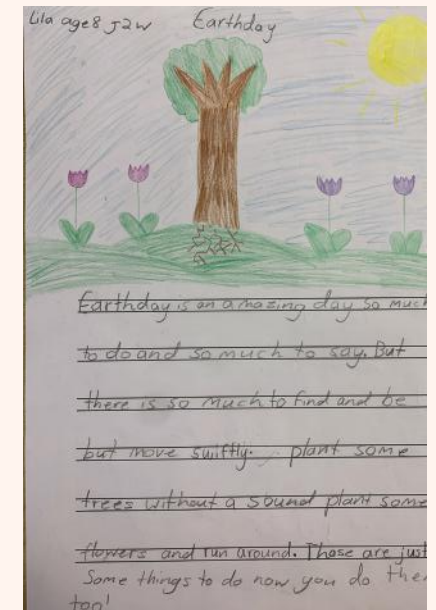 Lila age 8 J2W
Earthday
Earthday is an amazing day so much
to do and so much to say. But
there is so much to find and be
but move swiftly. plant some
trees without a sound plant some
flowers and run around. Those are just
Some things to do now you do them
too!